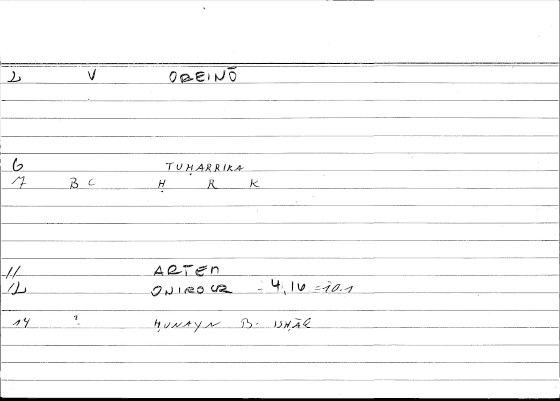 2 V OREINŌ
6 TUḤARRIKA
7 BC Ḥ R K
11 ARTEM
12 ONIROCR - 4,16 = 10.1
14 ? ḤUNAYN B. ISḤĀQ